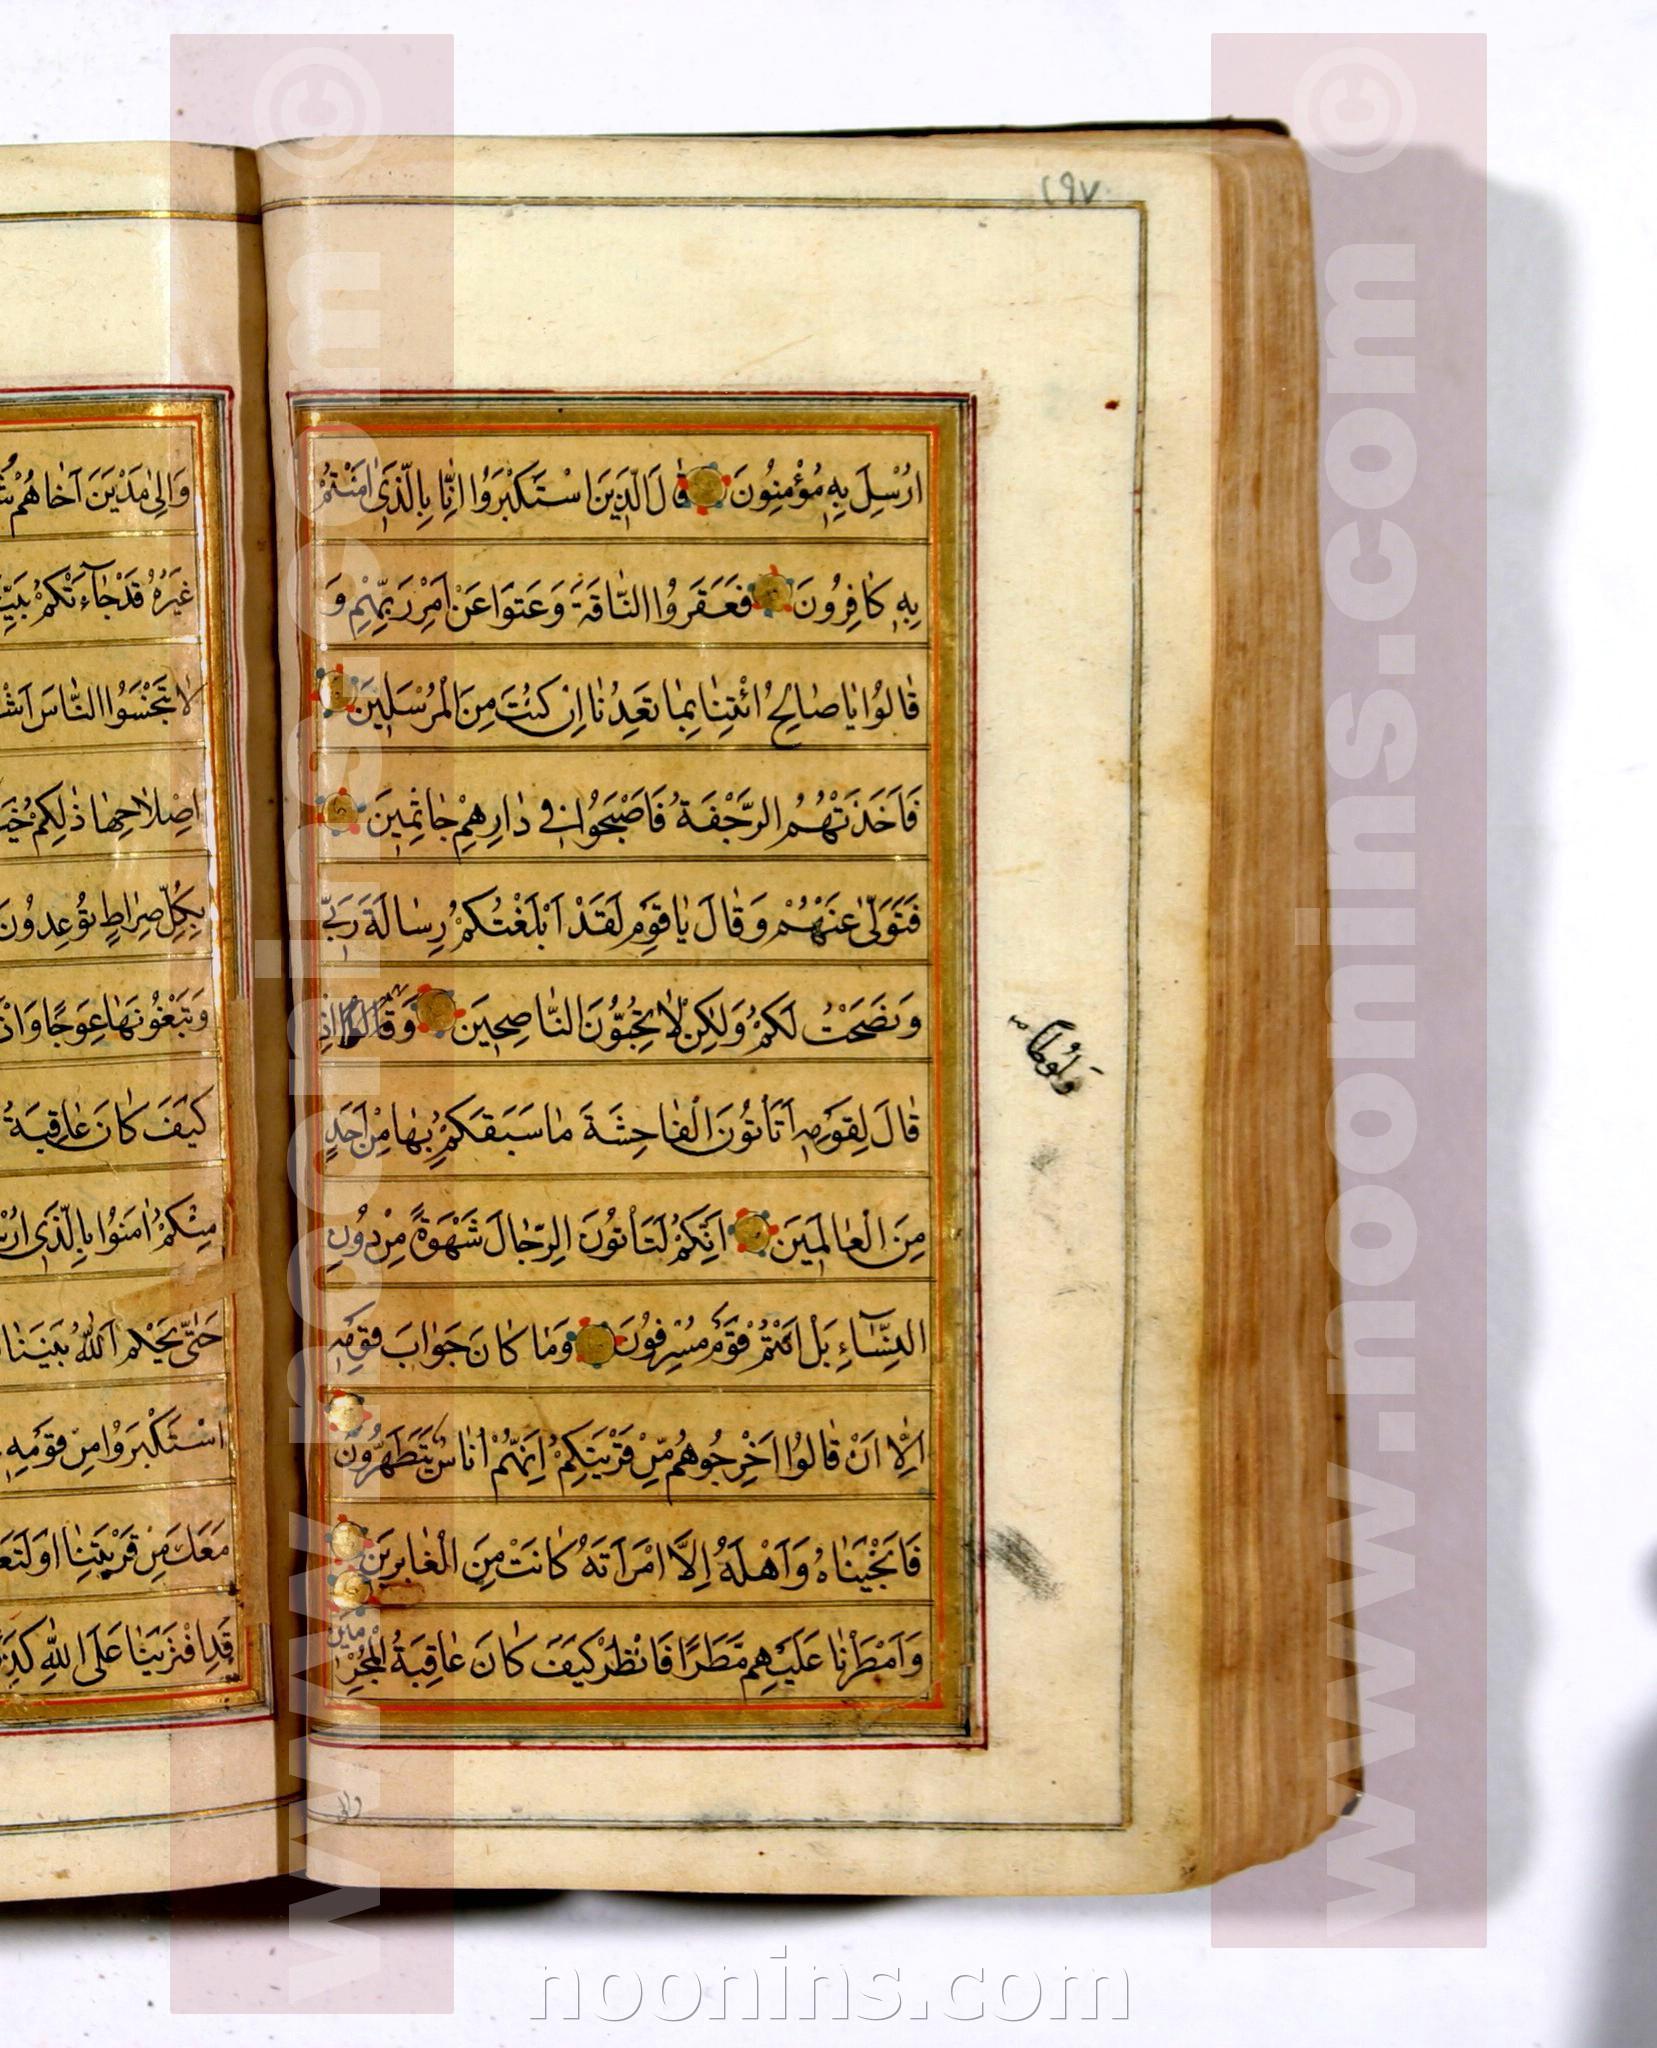 ١٩٧
ارُسِلَ بِهِ مُؤْمِنُونَ قٰالَ الَّذِينَ اسْتَكْبَرُوا اِنّٰا بِالَّذٖى اٰمَنْتُمْ
بِهِ كٰافِرُونَ فَعَقَرُوا النّٰاقَةَ وَعَتَوْا عَنْ اَمْرِ رَبِّهِمْ وَ
قٰالُوا يٰا صٰالِحُ ائْتِنٰا بِمٰا تَعِدُنٰا اِنْ كُنْتَ مِنَ الْمُرْسَلِينَ
فَاَخَذَتْهُمُ الرَّجْفَةُ فَاَصْبَحُوا فِي دٰارِهِمْ جٰاثِمِينَ
فَتَوَلّٰى عَنْهُمْ وَقٰالَ يٰا قَوْمِ لَقَدْ اَبْلَغْتُكُمْ رِسٰالَةَ رَبِّي
وَنَصَحْتُ لَكُمْ وَلٰكِنْ لٰا تُحِبُّونَ النّٰاصِحِينَ
وَلُوطًا
قٰالَ لِقَوْمِهِ اَتَأْتُونَ الْفٰاحِشَةَ مٰا سَبَقَكُمْ بِهٰا مِنْ اَحَدٍ
مِنَ الْعٰالَمِينَ اَئِنَّكُمْ لَتَأْتُونَ الرِّجٰالَ شَهْوَةً مِنْ دُونِ
النِّسٰآءِ بَلْ اَنْتُمْ قَوْمٌ مُسْرِفُونَ وَمٰا كٰانَ جَوٰابَ قَوْمِهِ
اِلّٰا اَنْ قٰالُوا اَخْرِجُوهُمْ مِنْ قَرْيَتِكُمْ اِنَّهُمْ اُنٰاسٌ يَتَطَهَّرُونَ
فَاَنْجَيْنٰاهُ وَاَهْلَهُ اِلَّا امْرَاَتَهُ كٰانَتْ مِنَ الْغٰابِرِينَ
وَاَمْطَرْنٰا عَلَيْهِمْ مَطَرًا فَانْظُرْ كَيْفَ كٰانَ عٰاقِبَةُ الْمُجْرِمِينَ
والى
وَاِلىٰ مَدْيَنَ اَخٰاهُمْ
غَيْرُهُ قَدْ جٰآءَتْكُمْ
لٰا تَبْخَسُوا النّٰاسَ
اِصْلٰاحِهٰا ذٰلِكُمْ
بِكُلِّ صِرٰاطٍ تُوعِدُونَ
وَتَبْغُونَهٰا عِوَجًا
كَيْفَ كٰانَ عٰاقِبَةُ
مِنْكُمْ اٰمَنُوا بِالَّذٖى
حَتّٰى يَحْكُمَ اللّٰهُ بَيْنَنٰا
اسْتَكْبَرُوا مِنْ قَوْمِهِ
مَعَكَ مِنْ قَرْيَتِنٰا اَوْ
قَدِ افْتَرَيْنٰا عَلَى اللّٰهِ
www.noonins.com ©
www.noonins.com ©
noonins.com